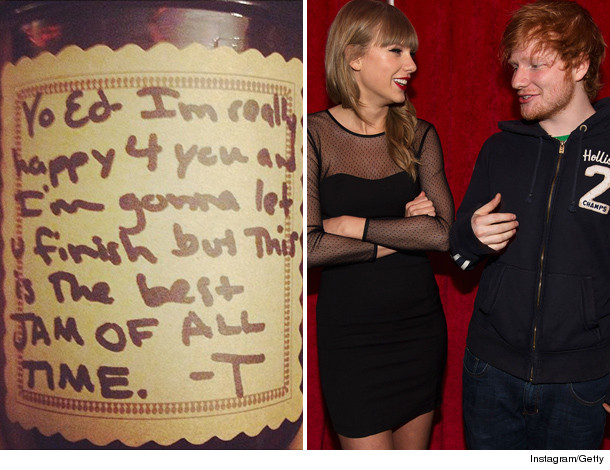 Yo Ed I'm really
happy 4 you an
I'm gonna let
u finish but This
is The best
JAM OF ALL
TIME. -T
Hollis
2
CHAMPS
Instagram/Getty